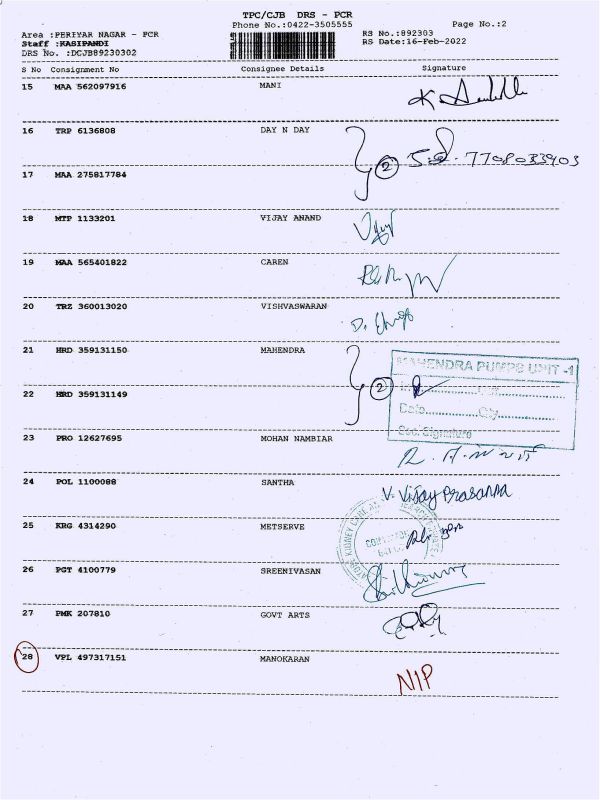 TPC/CJB DRS - PCR
Phone No.:0422-3505555
Page No.:2
Area :PERIYAR NAGAR - PCR
RS No.:892303
Staff :KASIPANDI
RS Date:16-Feb-2022
DRS No. :DCJB89230302
S No Consignment No Consignee Details Signature
15 MAA 562097916 MANI
16 TRP 6136808 DAY N DAY
2 7708033903
17 MAA 275817784
18 MTP 1133201 VIJAY ANAND
19 MAA 565401822 CAREN
20 TRZ 360013020 VISHVASWARAN
21 HRD 359131150 MAHENDRA
MAHENDRA PUMPS UNIT -1
22 HRD 359131149 2
Date City
Sec. Signature
23 PRO 12627695 MOHAN NAMBIAR
24 POL 1100088 SANTHA V. Vijay Prasanna
25 KRG 4314290 METSERVE
26 PGT 4100779 SREENIVASAN
27 PMK 207810 GOVT ARTS
28 VPL 497317151 MANOKARAN NIP